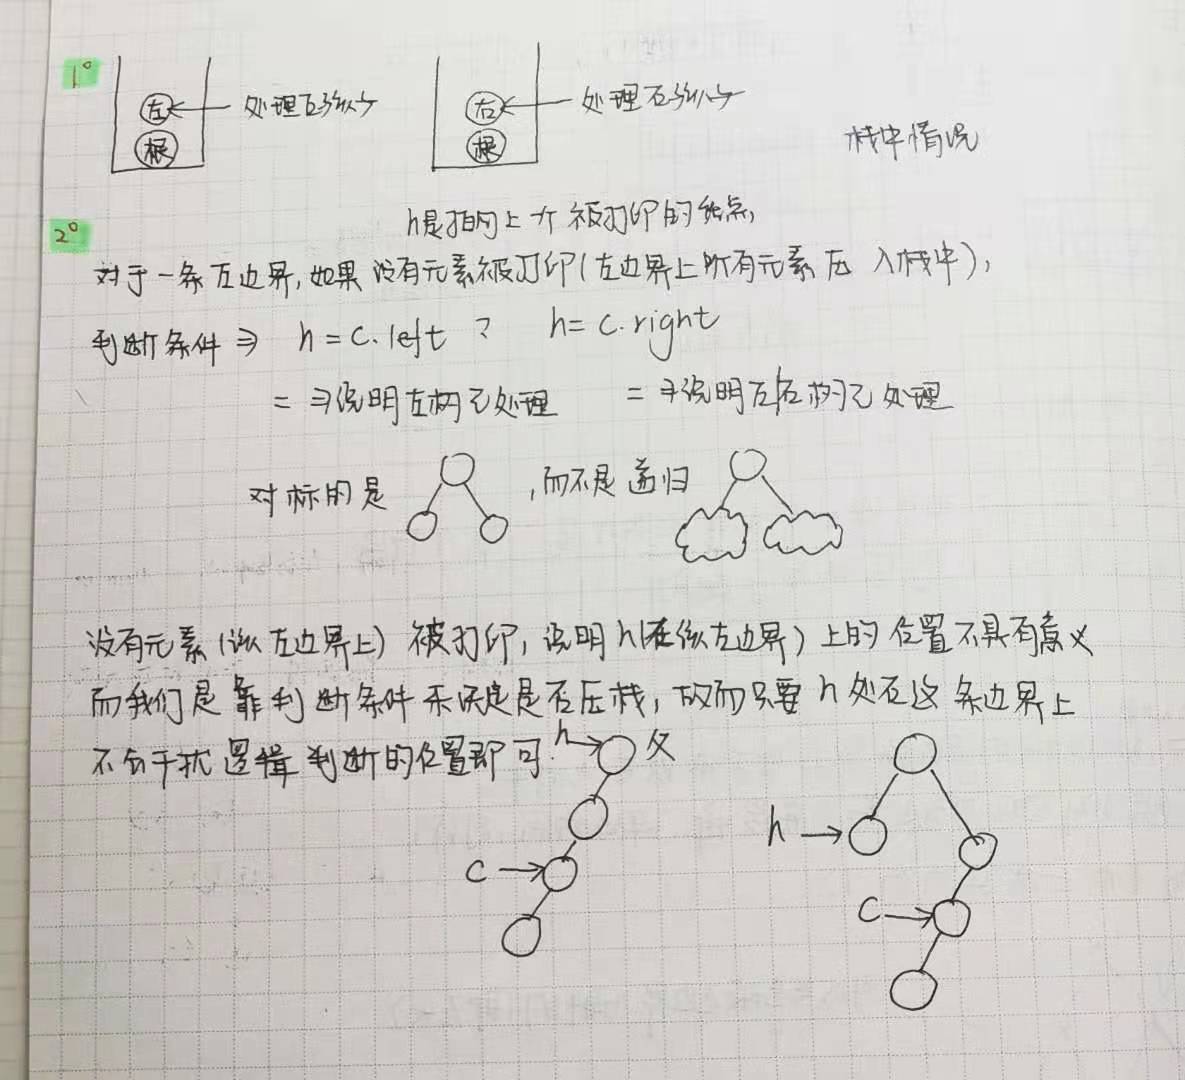 1°
左 处理后弹出 右 处理后弹出
根 根
栈中情况
2°
h是指向上个被打印的结点,
对于一条左边界,如果没有元素被打印(左边界上所有元素压入栈中),
判断条件⇒ h = c.left ? h = c.right
= ⇒说明左树已处理 = ⇒说明左右树已处理
对标的是 ,而不是递归
没有元素(从左边界上)被打印,说明h(在从左边界)上的位置不具有意义
而我们是靠判断条件来决定是否压栈,故而只要h处在这条边界上
不会干扰逻辑判断的位置即可.
h 父
h
c
c